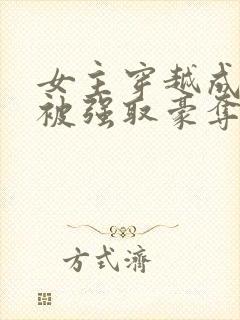 女主穿越成
被强取豪夺
方式济